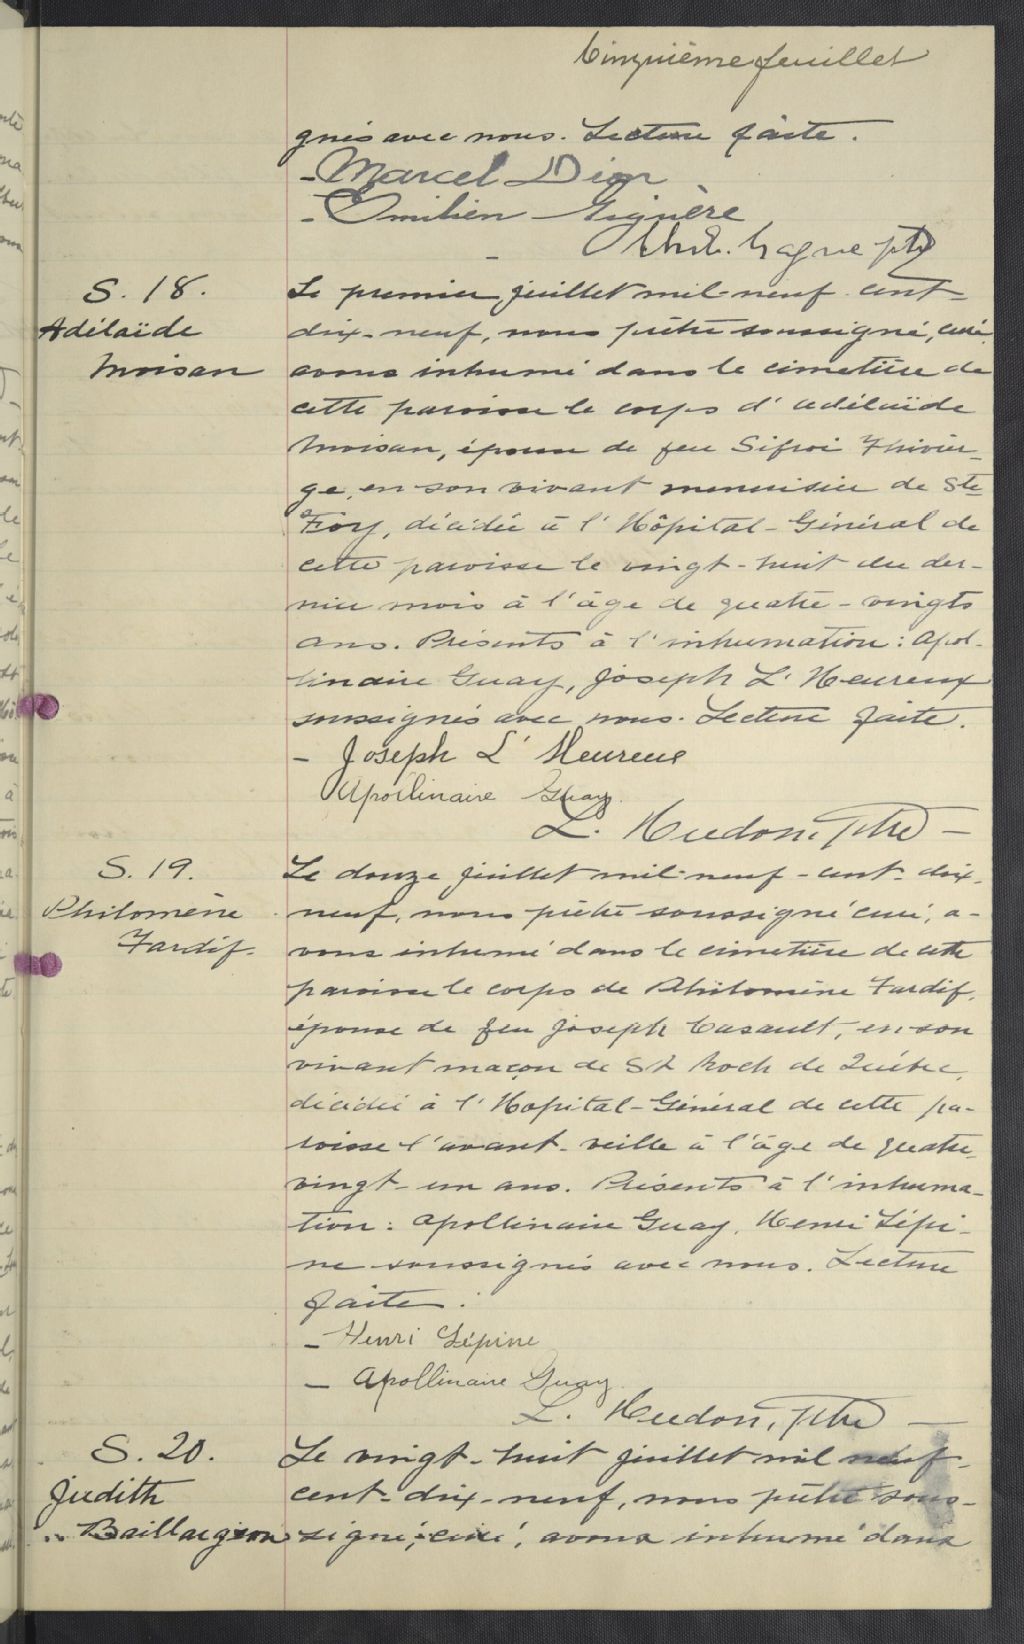 Cinquième feuillet
gnés avec nous. Lecture faite.
- Marcel Dion
- Emilien Gignère
Gagné ptre
S. 18.
Adélaïde
Moisan
Le premier juillet mil-neuf cent-
dix-neuf, nous prêtre soussigné, curé,
avons inhumé dans le cimetière de
cette paroisse le corps d'Adélaïde
Moisan, épouse de feu Sifroi Thivier-
ge, en son vivant menuisier de Ste
Foy, décédée à l'Hôpital-Général de
cette paroisse le vingt-huit du der-
nier mois à l'âge de quatre-vingts
ans. Présents à l'inhumation: Apol-
linaire Guay, Joseph L'Heureux
soussignés avec nous. Lecture faite.
- Joseph L'Heureux
Apollinaire Guay
L. Hudon, Ptre -
S. 19.
Philomène
Tardif.
Le douze juillet mil-neuf-cent-dix-
neuf, nous prêtre soussigné curé, a-
vons inhumé dans le cimetière de cette
paroisse le corps de Philomène Tardif,
épouse de feu Joseph Casault, en son
vivant maçon de St Roch de Québec,
décédée à l'Hopital-Général de cette pa-
roisse l'avant-veille à l'âge de quatre-
vingt-un ans. Présents à l'inhuma-
tion: Apollinaire Guay, Henri Lépi-
ne soussignés avec nous. Lecture
faite.
- Henri Lépine
- Apollinaire Guay
L. Hudon, Ptre -
S. 20.
Judith
Baillargeon
Le vingt-huit juillet mil neuf-
cent-dix-neuf, nous prêtre sous-
signé, curé, avons inhumé dans